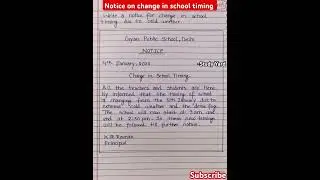 Notice on change in school timing
Write a notice for change in school
timing due to cold weather.
Gyan Public School, Delhi
NOTICE
4th January, 2023
Change in School Timing
All the teachers and students are here
by informed that the timing of school
is changing from the 5th January due to
extreme cold weather and the dense fog.
The school will now start at 9am and
end at 2:30 pm. The same new timing
will be followed till further notice.
Principal
StudyYard
Subscribe